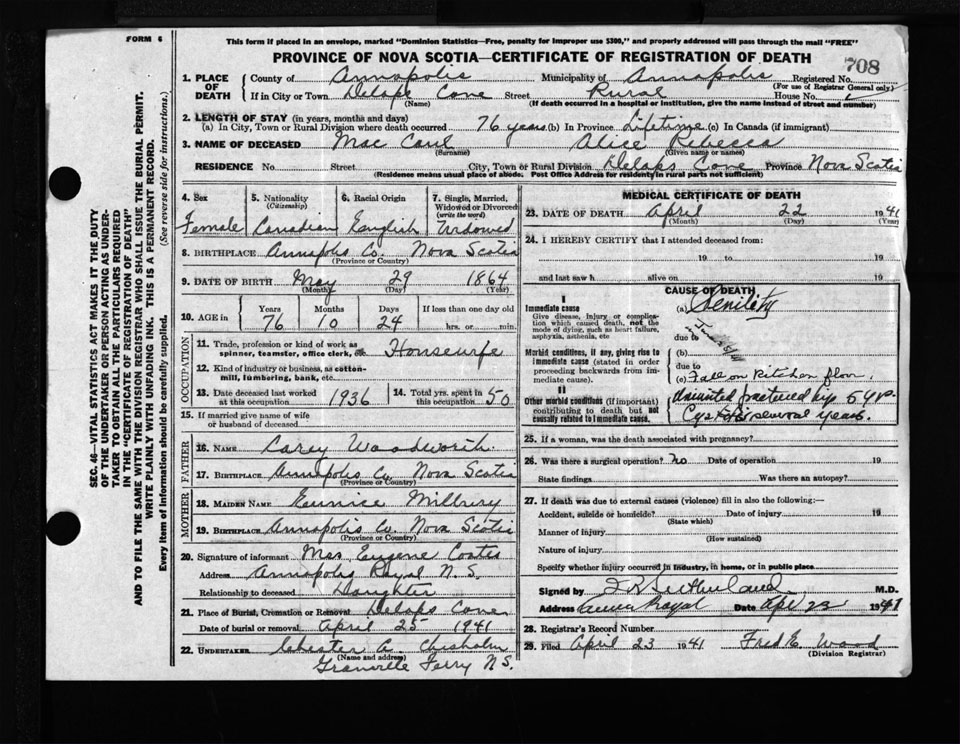 FORM 6
This form if placed in an envelope, marked "Dominion Statistics—Free, penalty for improper use $300," and properly addressed will pass through the mail "FREE"
PROVINCE OF NOVA SCOTIA—CERTIFICATE OF REGISTRATION OF DEATH
708
1. PLACE OF DEATH
County of Annapolis Municipality of Annapolis Registered No.
(For use of Registrar General only)
If in City or Town Delaps Cove Street Rural House No.
(Name) (If death occurred in a hospital or institution, give the name instead of street and number)
2. LENGTH OF STAY (in years, months and days)
(a) In City, Town or Rural Division where death occurred 76 years (b) In Province Lifetime (c) In Canada (if immigrant)
3. NAME OF DECEASED Mac Caul Alice Rebecca
(Surname) (Given name or names)
RESIDENCE No. Street City, Town or Rural Division Delaps Cove Province Nova Scotia
(Residence means usual place of abode. Post Office Address for residents in rural parts not sufficient)
4. Sex
5. Nationality (Citizenship)
6. Racial Origin
7. Single, Married, Widowed or Divorced (write the word)
Female Canadian English Widowed
8. BIRTHPLACE Annapolis Co. Nova Scotia
(Province or Country)
9. DATE OF BIRTH May 29 1864
(Month) (Day) (Year)
10. AGE in Years Months Days If less than one day old
76 10 24 hrs. or min.
OCCUPATION
11. Trade, profession or kind of work as spinner, teamster, office clerk, etc. Housewife
12. Kind of industry or business, as cotton-mill, lumbering, bank, etc.
13. Date deceased last worked at this occupation 1936
14. Total yrs. spent in this occupation 50
15. If married give name of wife or husband of deceased
FATHER
16. NAME Carey Woodworth
17. BIRTHPLACE Annapolis Co. Nova Scotia
(Province or Country)
MOTHER
18. MAIDEN NAME Eunice Millbury
19. BIRTHPLACE Annapolis Co. Nova Scotia
(Province or Country)
20. Signature of informant Mrs Eugene Coates
Address Annapolis Royal N. S.
Relationship to deceased Daughter
21. Place of Burial, Cremation or Removal Delaps Cove
Date of burial or removal April 25 1941
22. UNDERTAKER Chester A. Chisholm
(Name and address)
Granville Ferry N S.
MEDICAL CERTIFICATE OF DEATH
23. DATE OF DEATH April 22 1941
(Month) (Day) (Year)
24. I HEREBY CERTIFY that I attended deceased from:
19 to 19
and last saw h alive on 19
CAUSE OF DEATH
I
Immediate cause
Give disease, injury or complication which caused death, not the mode of dying, such as heart failure, asphyxia, asthenia, etc
(a) Senility
due to
Morbid conditions, if any, giving rise to immediate cause (stated in order proceeding backwards from immediate cause).
(b)
due to
(c) Fall on Kitchen floor.
II
Other morbid conditions (if important) contributing to death but not causally related to immediate cause.
Ununited fractured hip 5 yrs.
several years.
25. If a woman, was the death associated with pregnancy?
26. Was there a surgical operation? no Date of operation 19
State findings Was there an autopsy?
27. If death was due to external causes (violence) fill in also the following:—
Accident, suicide or homicide? Date of injury 19
(State which)
Manner of injury
(How sustained)
Nature of injury
Specify whether injury occurred in industry, in home, or in public place
Signed by Sutherland M.D.
Address Anna Royal Date Apl 23 1941
28. Registrar's Record Number
29. Filed April 23 1941 Fred E. Wood
(Division Registrar)
SEC. 46—VITAL STATISTICS ACT MAKES IT THE DUTY
OF THE UNDERTAKER OR PERSON ACTING AS UNDER-
TAKER TO OBTAIN ALL THE PARTICULARS REQUIRED
IN THE "CERTIFICATE OF REGISTRATION OF DEATH"
AND TO FILE THE SAME WITH THE DIVISION REGISTRAR WHO SHALL ISSUE THE BURIAL PERMIT.
WRITE PLAINLY WITH UNFADING INK. THIS IS A PERMANENT RECORD.
Every item of information should be carefully supplied. (See reverse side for instructions.)